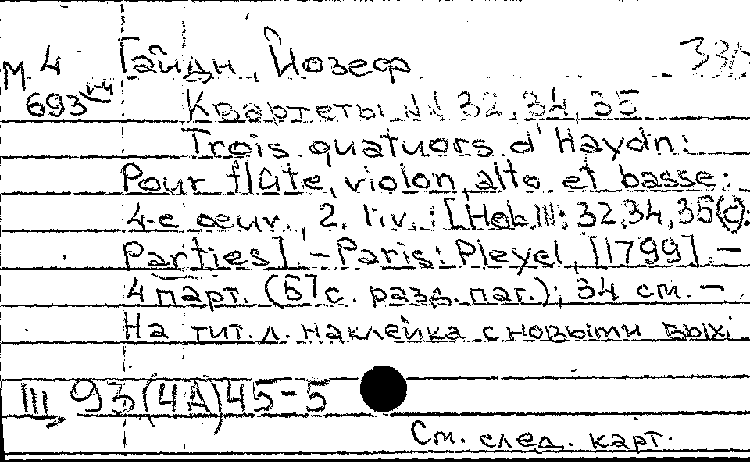 М 4 Гайдн, Йозеф 335
693
Квартеты №№ 32, 34, 35
Trois quatuors d'Haydn:
Pour flûte, violon, alto et basse:
4-e oeuv., 2. liv.: [Hob.III: 32,34,35(c).
Parties]. - Paris: Pleyel, [1799]. -
4 парт. (57 с. разд. паг.); 34 см. -
На тит. л. наклейка с новыми вых.
III 93(4А)45-5
См. след. карт.